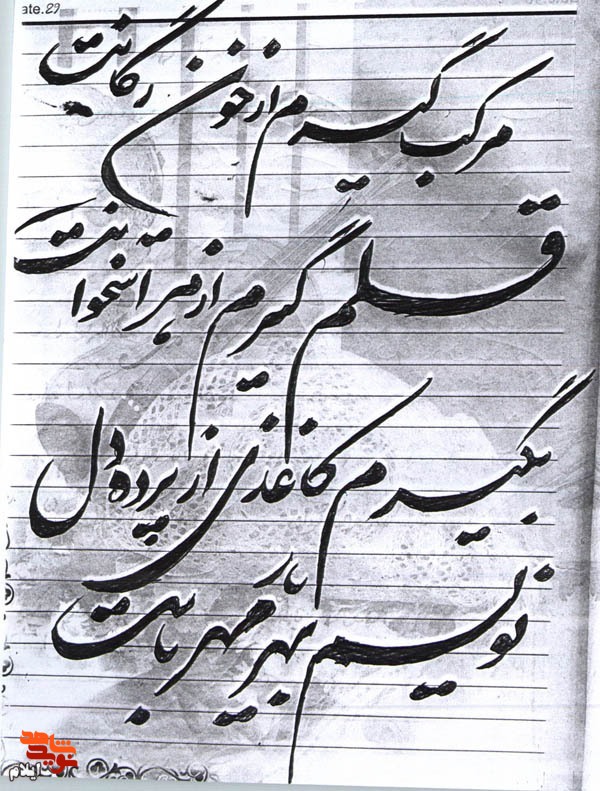 ate.29
مرکب گیرم از خون رگانت
قلم گیرم از هر استخوانت
بگیرم کاغذی از پرده دل
نویسم بهر یار مهربانت
نوید شاهد
ایلام